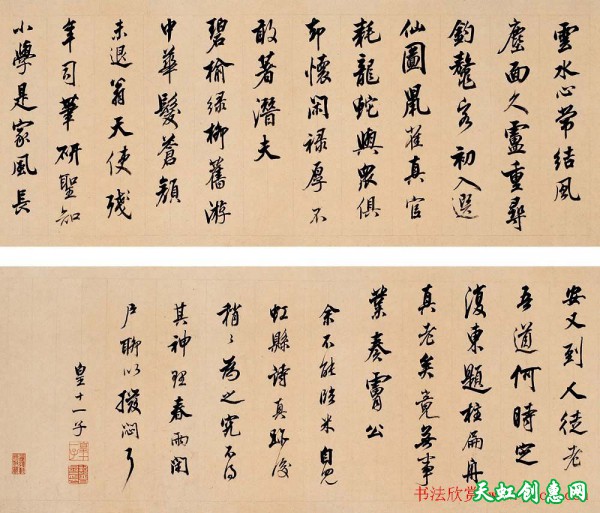 雲水心常結風
塵面久盧重尋
釣鼇客初入選
仙圖鼠雀真官
耗龍蛇與衆俱
却懷閑祿厚不
敢著潛夫
碧榆緑柳舊游
中華髮蒼顔
未退翁天使殘
年司筆研聖知
小學是家風長
安又到人徒老
吾道何時定
復東題柱扁舟
真老矣竟無事
業奏膚公
余不能臨米自見
虹縣詩真跡後
稍〻為之究不得
其神理春雨閉
戶聊以撥悶耳
皇十一子
书法欣赏
天虹创惠网